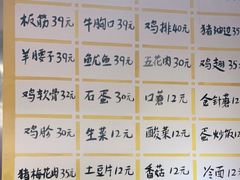 板筋39元 牛胸口39元 鸡排40元 猪油边35
羊腰子39元 鱿鱼39元 五花肉30元 鸡翅35元
鸡软骨32元 石蛋30元 口蘑12元 金针菇12
鸡胗30元 生菜12元 酸菜12元 蛋炒饭12
猪梅花肉35元 土豆片12元 香菇12元 冷面12